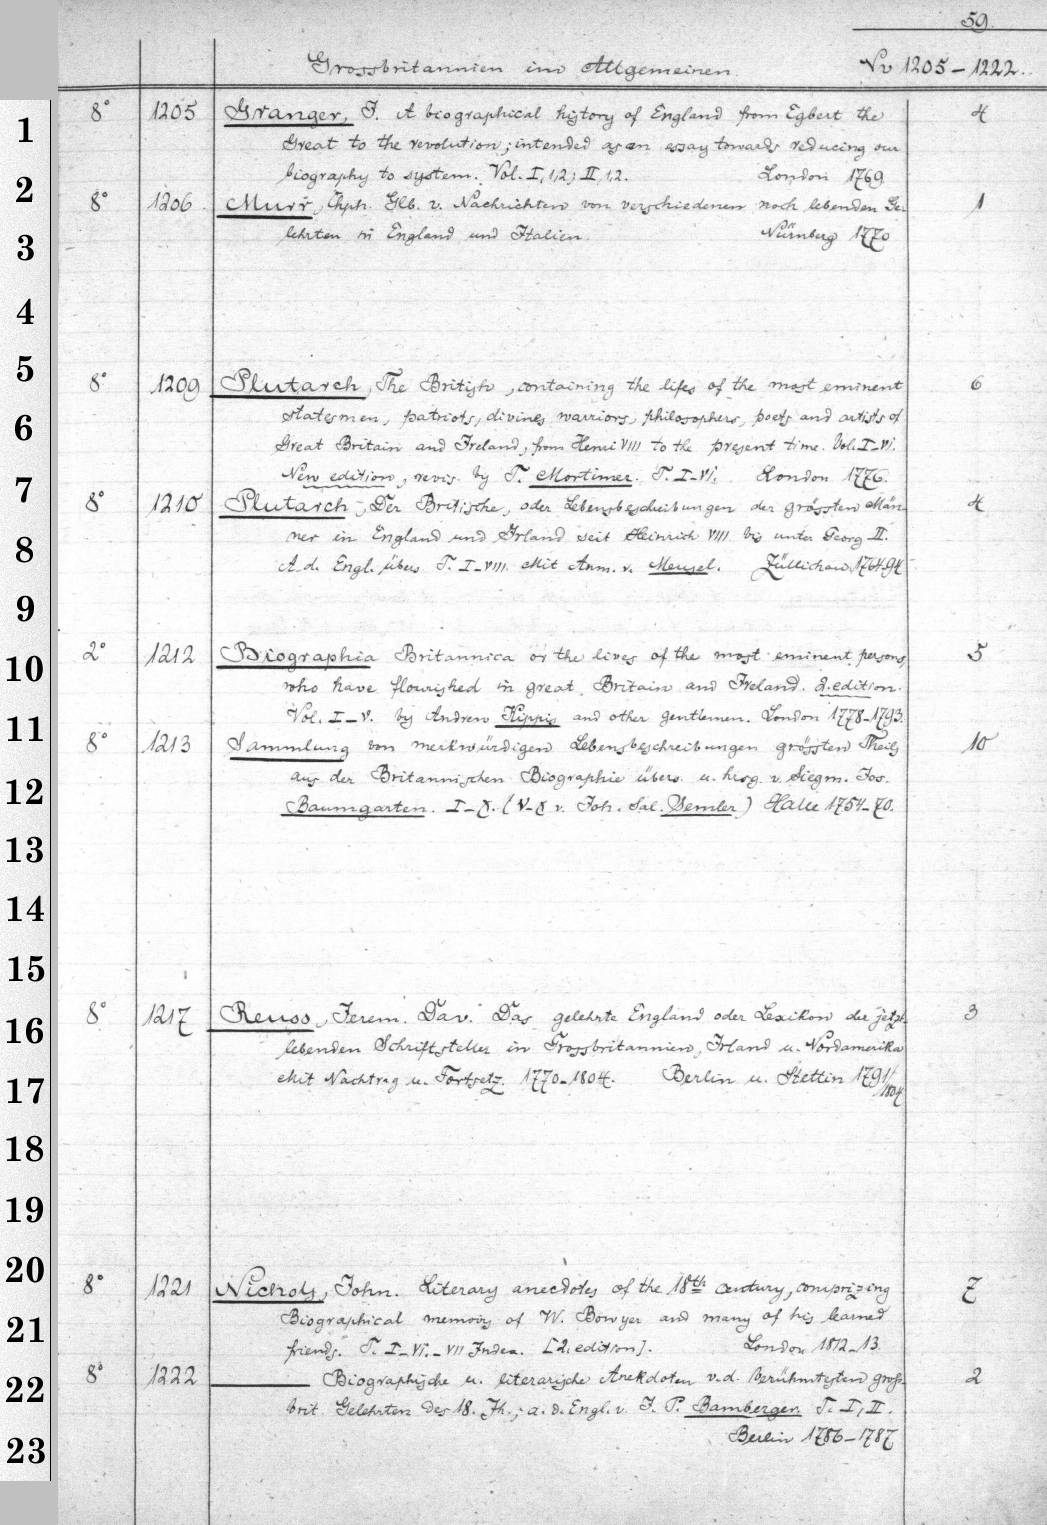 59.
Grossbritannien im Allgemeinen. Nr 1205 – 1222.
1
8° 1205 Granger, J. A biographical history of England from Egbert the 4
Great to the revolution; intended as an essay towards reducing our
2
biography to system. Vol. I,1,2; II,1,2. London 1769
8° 1206 Murr, Chph. Glb. v. Nachrichten von verschiedenen noch lebenden Ge- 1
3
lehrten in England und Italien. Nürnberg 1770
4
5
8° 1209 Plutarch, The British, containing the lifes of the most eminent 6
6
statesmen, patriots, divines, warriors, philosophers, poets and artists of
Great Britain and Ireland, from Henri VIII to the present time. Vol. I–VI.
7
New edition, revis. by T. Mortimer. T. I–VI. London 1776.
8° 1210 Plutarch, Der Britische, oder Lebensbescheibungen der grössten Män- 4
8
ner in England und Irland seit Heinrich VIII bis unter Georg II.
A. d. Engl. übers. T. I–VIII. Mit Anm. v. Meusel. Züllichau 1764–94
9
10
2° 1212 Biographia Britannica or the lives of the most eminent persons 5
who have flourished in great Britain and Ireland. 2. edition.
11
Vol. I–V. by Andrew Kippis and other gentlemen. London 1778–1793.
8° 1213 Sammlung von merkwürdigen Lebensbescheibungen grössten Theils 10
12
aus der Britannischen Biographie übers. u. hrsg. v. Siegm. Jac.
Baumgarten. I–X. (V–X v. Joh. Sal. Semler) Halle 1754–70.
13
14
15
16
8° 1217 Reuss, Jerem. Dav. Das gelehrte England oder Lexikon der jetzt- 3
lebenden Schriftsteller in Grossbritannien, Irland u. Nordamerika
17
Mit Nachtrag u. Fortsetz. 1770–1804. Berlin u. Stettin 1791/1804
18
19
20
8° 1221 Nichols, John. Literary anecdotes of the 18th century, comprizing 7
21
Biographical memoirs of W. Bowyer and many of his learned
friends. T. I–VI.–VII Index. [2. edition]. London 1812–13.
22
8° 1222 ——— Biographische u. literarische Anekdoten v. d. berühmtesten gross- 2
brit. Gelehrten des 18. Jh.; a. d. Engl. v. J. P. Bambergen T. I, II.
23
Berlin 1786–1787